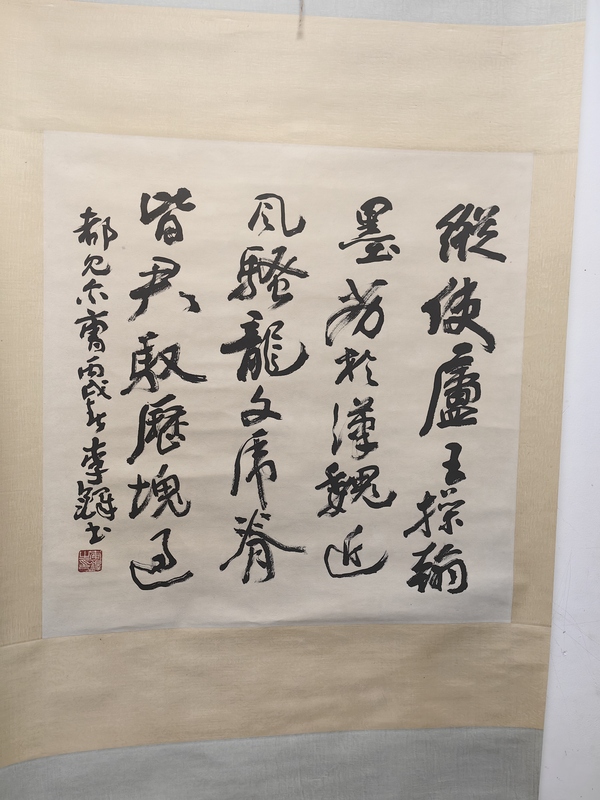 縱使盧王操翰
墨劣於漢魏近
風騷龍文虎脊
皆君馭歷塊過
都見尔曹丙戌春李鐸书